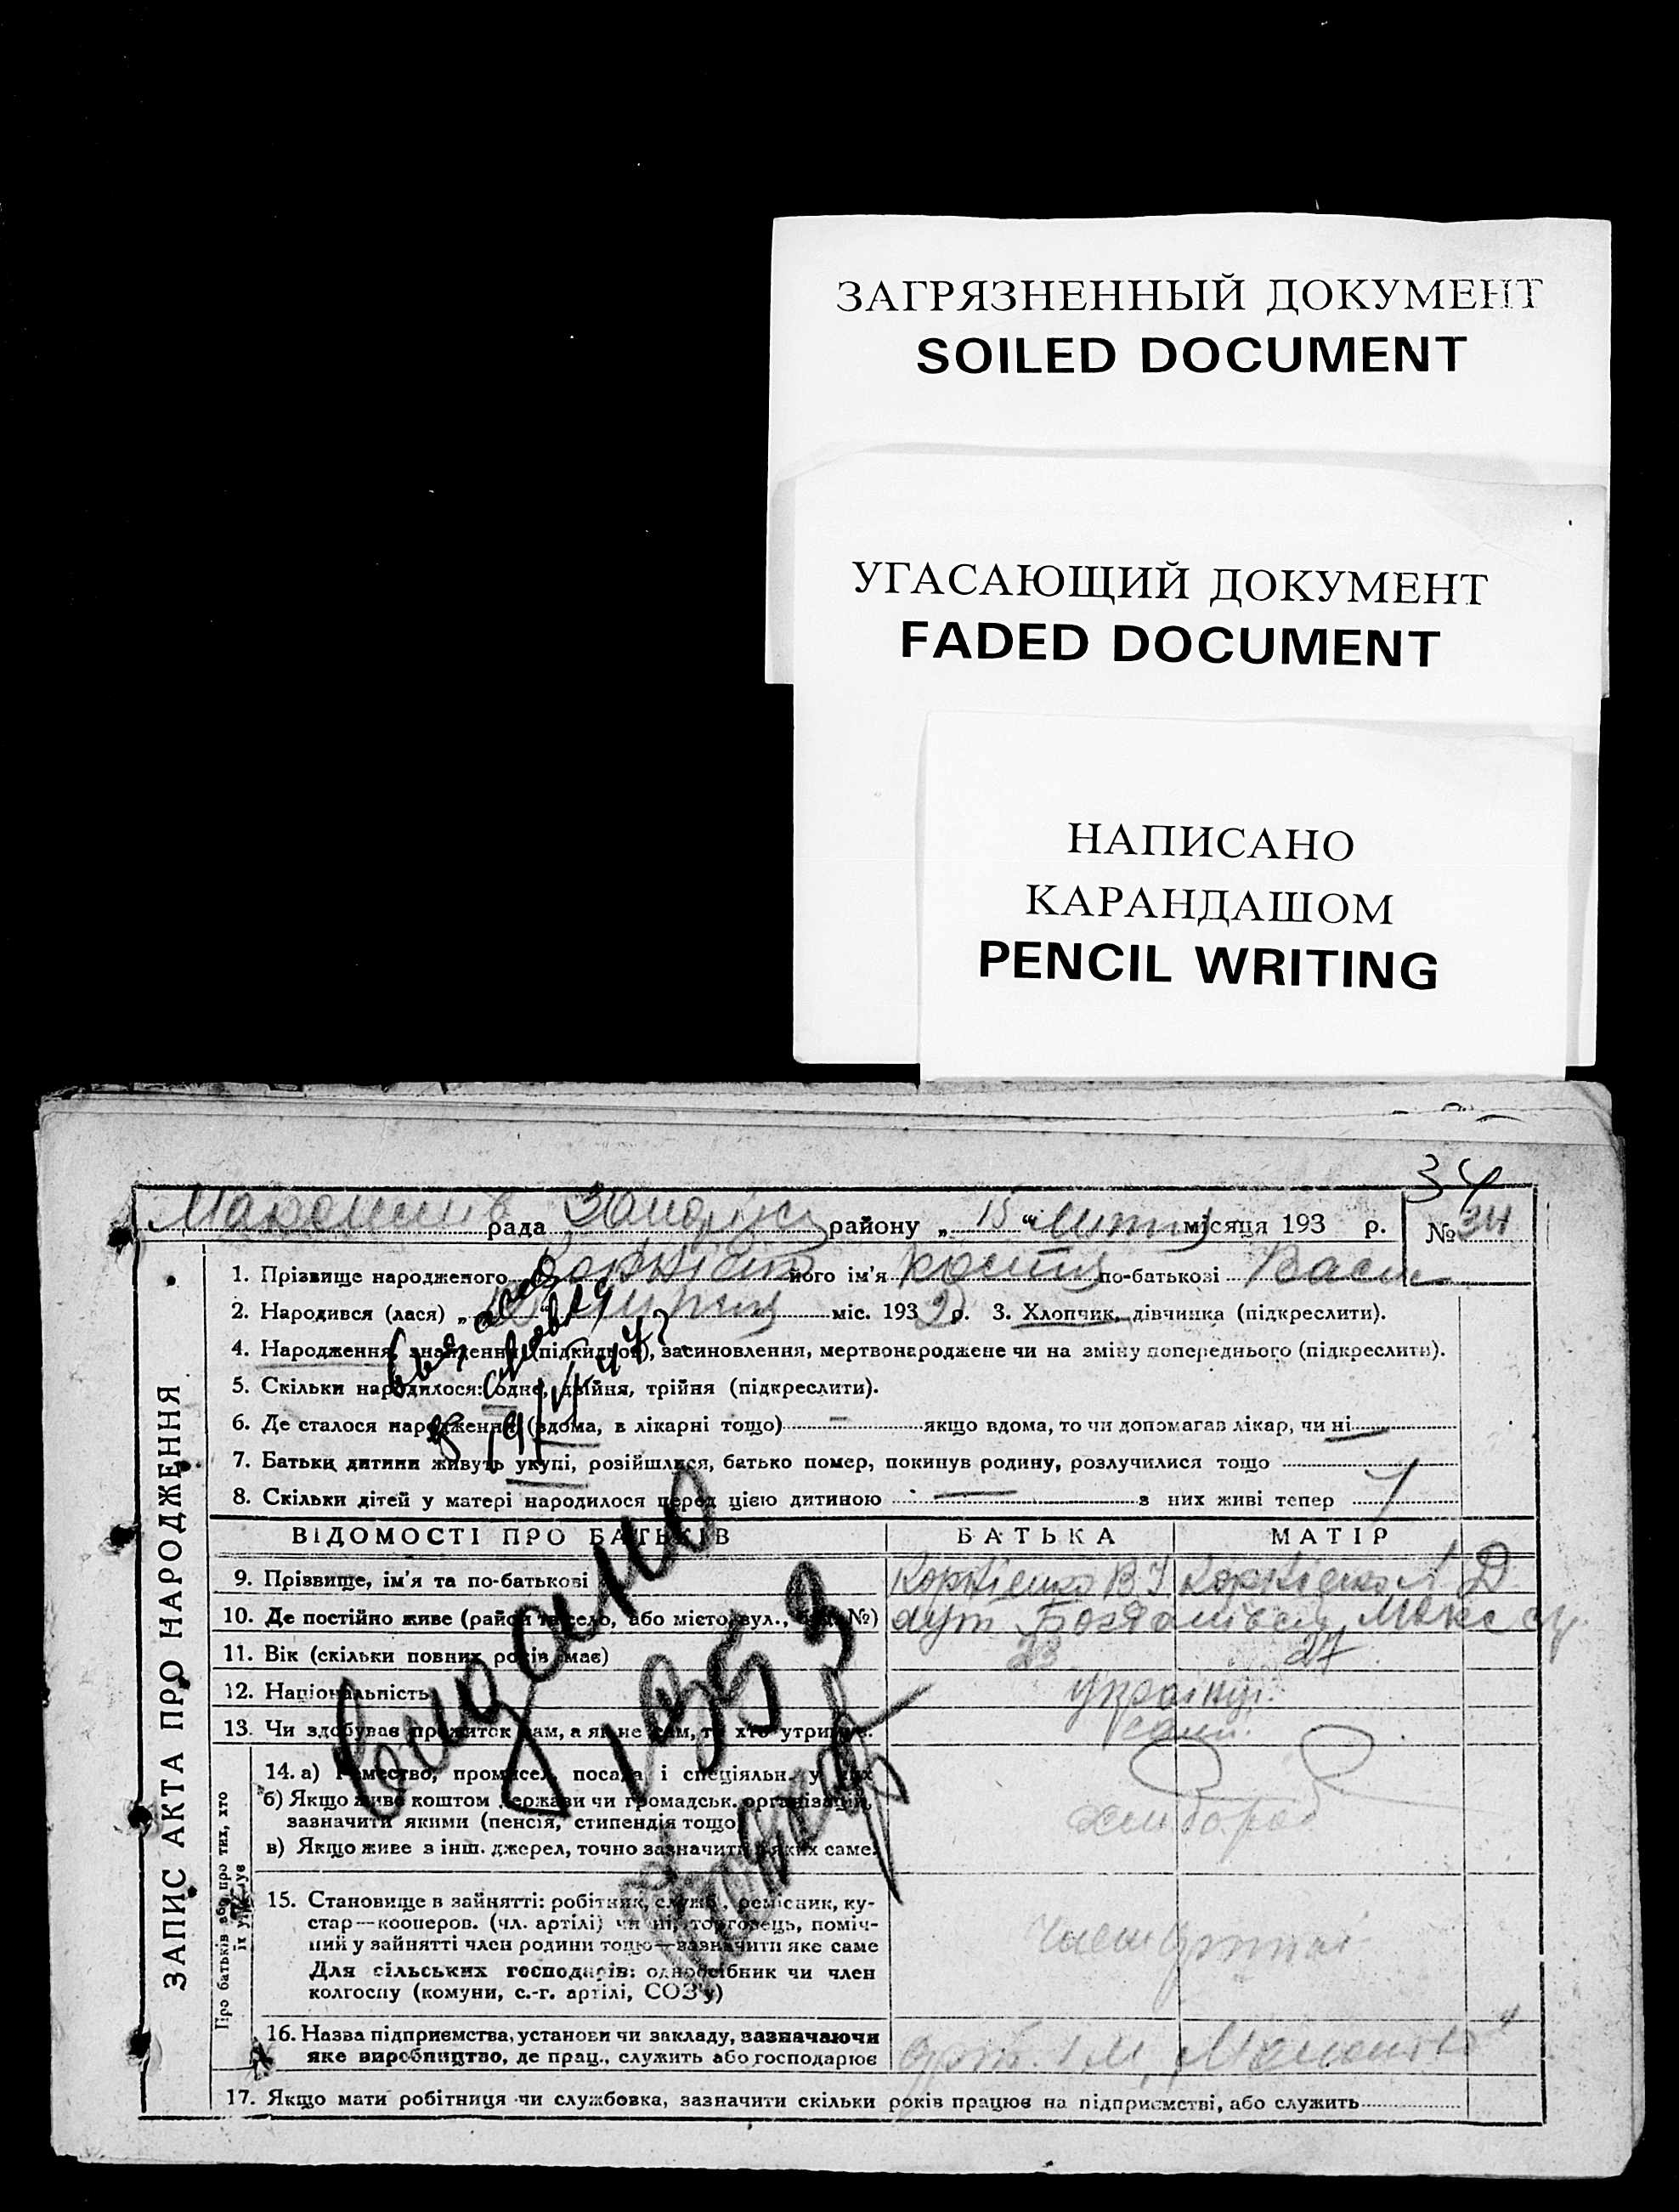 ЗАГРЯЗНЕННЫЙ ДОКУМЕНТ
SOILED DOCUMENT
УГАСАЮЩИЙ ДОКУМЕНТ
FADED DOCUMENT
НАПИСАНО
КАРАНДАШОМ
PENCIL WRITING
34
рада району „ 15 “ місяця 193 р. № 34
ЗАПИС АКТА ПРО НАРОДЖЕННЯ
1. Прізвище народженого його ім'я по-батькові Васи
2. Народився (лася) „ міс. 1932 р. 3. Хлопчик, дівчинка (підкреслити).
4. Народження, знайдення (підкидьок), засиновлення, мертвонароджене чи на зміну попереднього (підкреслити).
5. Скільки народилося: одне, двійня, трійня (підкреслити).
6. Де сталося народження (вдома, в лікарні тощо) — якщо вдома, то чи допомагав лікар, чи ні
7. Батьки дитини живуть укупі, розійшлися, батько помер, покинув родину, розлучилися тощо
8. Скільки дітей у матері народилося перед цією дитиною — з них живі тепер
ВІДОМОСТІ ПРО БАТЬКІВ БАТЬКА МАТІР
9. Прізвище, ім'я та по-батькові Корнієнко В І Корнієнко Д
10. Де постійно живе (район та село, або місто, вул., буд. №) хут Богданівськ
11. Вік (скільки повних років має) 23 27
12. Національність українці
13. Чи здобував прожиток сам, а як не сам, то хто утримує. сами.
Про батьків або про тих, хто їх утримує
14. а) Ремество, промисел, посада і спеціяльн. у них
б) Якщо живе коштом держави чи громадськ. організацій, зазначити якими (пенсія, стипендія тощо) хлібороб
в) Якщо живе з інш. джерел, точно зазначити з яких саме.
15. Становище в зайнятті: робітник, служб., ремісник, ку-
стар—кооперов. (чл. артілі) чи ні, торговець, поміч-
ний у зайнятті член родини тощо—зазначити яке саме член артілі
Для сільських господарів: одноосібник чи член
колгоспу (комуни, с.-г. артілі, СОЗ'у)
16. Назва підприємства, установи чи закладу, зазначаючи
яке виробництво, де прац., служить або господарює
17. Якщо мати робітниця чи службовка, зазначити скільки років працює на підприємстві, або служить
видано
1953